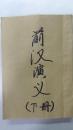 前汉演义
(下册)